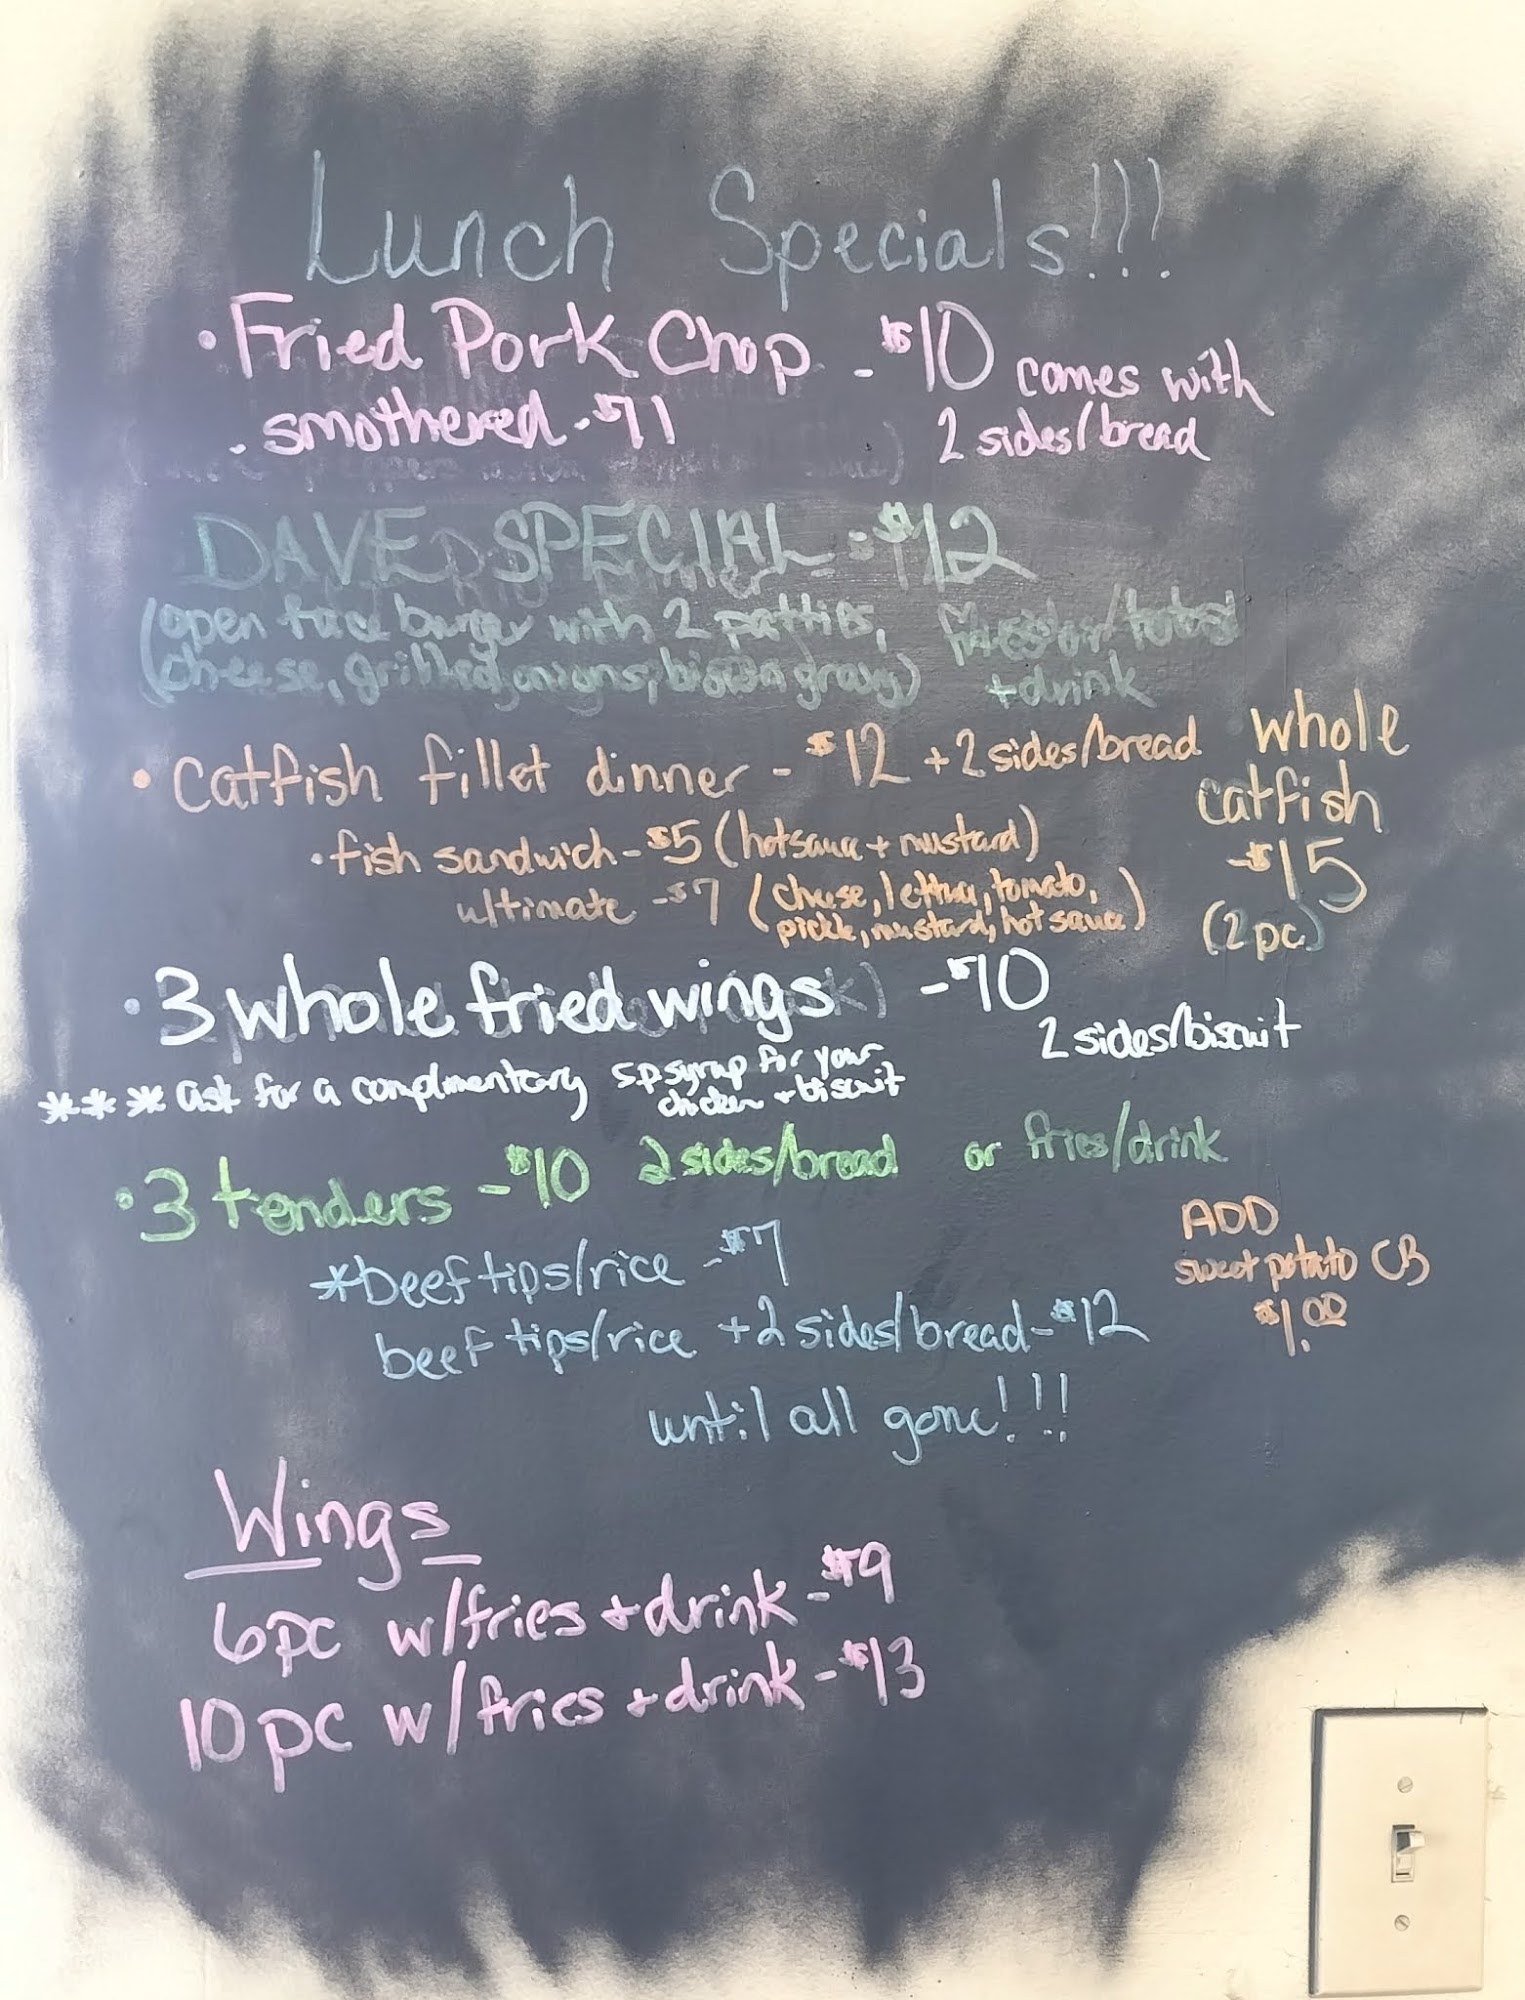 Lunch Specials!!!
• Fried Pork Chop - $10 comes with
2 sides/bread
- smothered - $11
DAVE SPECIAL - $12
(open face burger with 2 patties,
cheese, grilled onions, brown gravy)
+drink
• Catfish fillet dinner - $12 +2 sides/bread
whole
catfish
- $15
(2pc)
• fish sandwich - $5 (hot sauce + mustard)
ultimate - $7 (cheese, lettuce, tomato,
pickle, mustard, hot sauce)
• 3 whole fried wings - $10
2 sides/biscuit
*** ask for a complimentary SP syrup for your
chicken + biscuit
• 3 tenders - $10 2 sides/bread or fries/drink
*beef tips/rice - $7
beef tips/rice +2 sides/bread - $12
until all gone!!!
ADD
sweet potato CB
$1.00
Wings
6pc w/fries + drink - $9
10pc w/fries + drink - $13